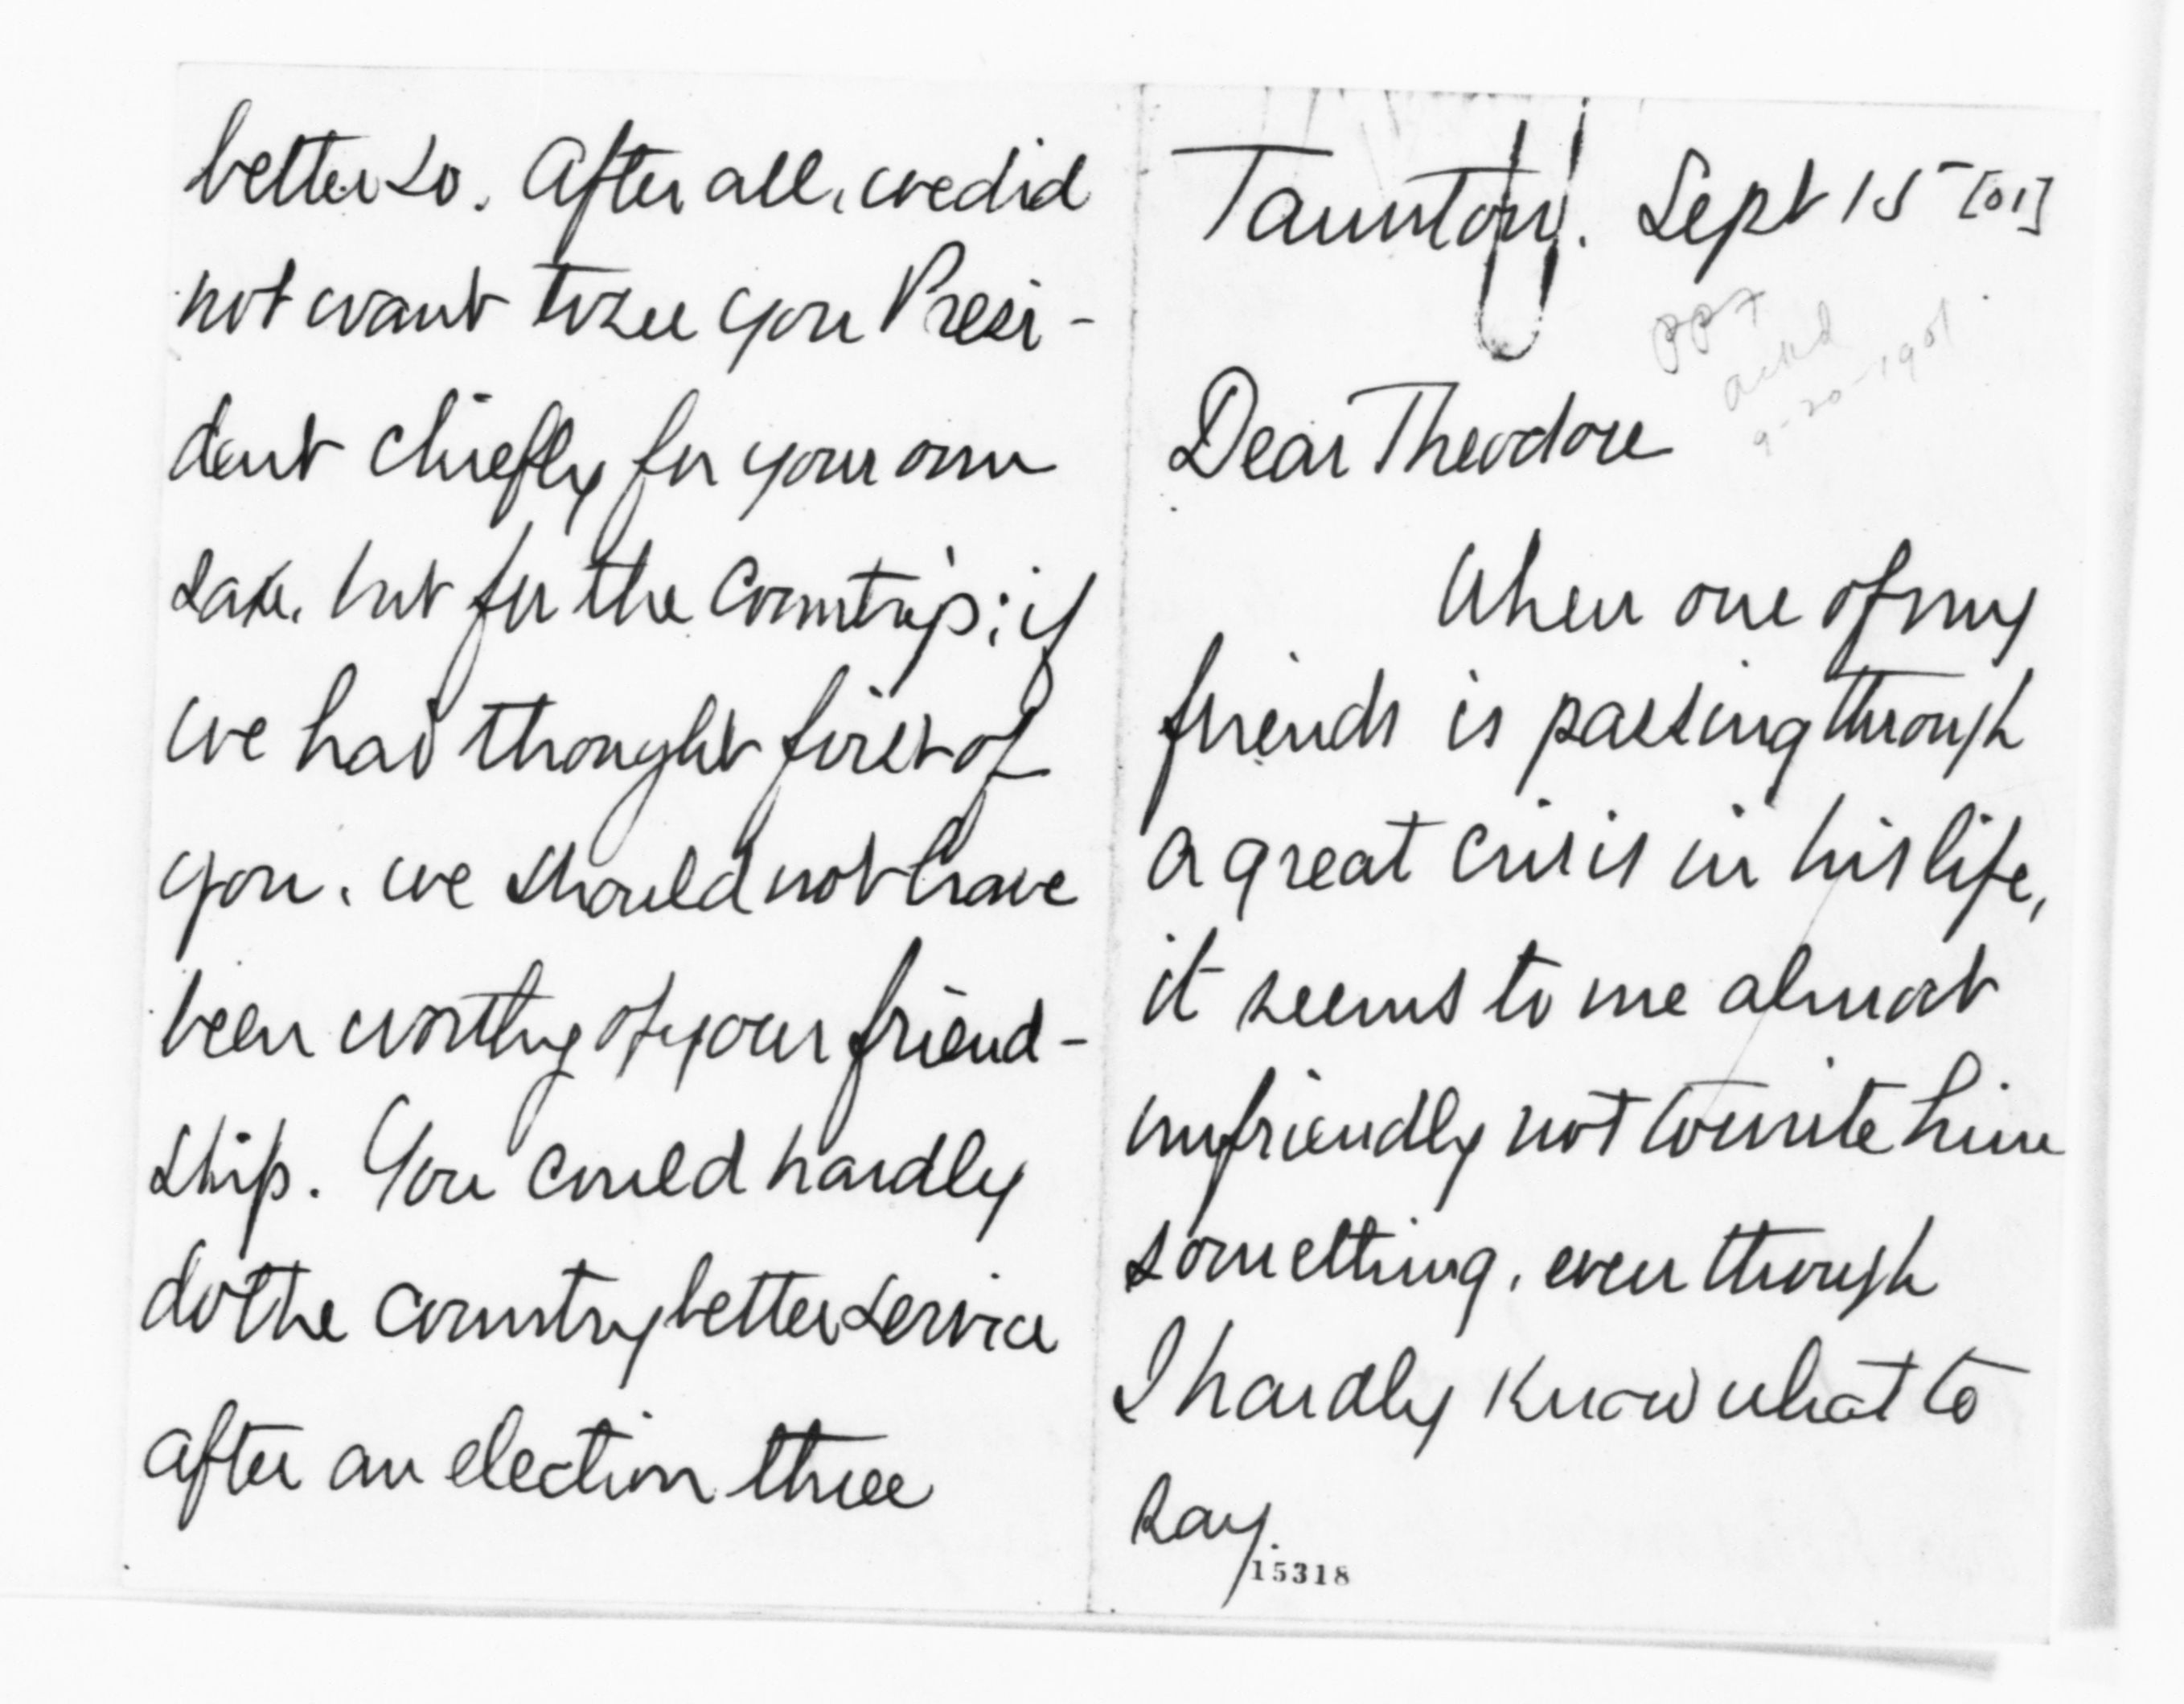 better so. After all, we did
not want to see you Presi-
dent chiefly for your own
sake, but for the Country's; if
we had thought first of
you, we should not have
been worthy of your friend-
ship. You could hardly
do the country better service
after an election three
Taunton. Sept 15 [01]
PPF
ackd
9-20-1901
Dear Theodore
When one of my
friends is passing through
a great crisis in his life,
it seems to me almost
unfriendly not to write him
something, even though
I hardly know what to
say.
15318